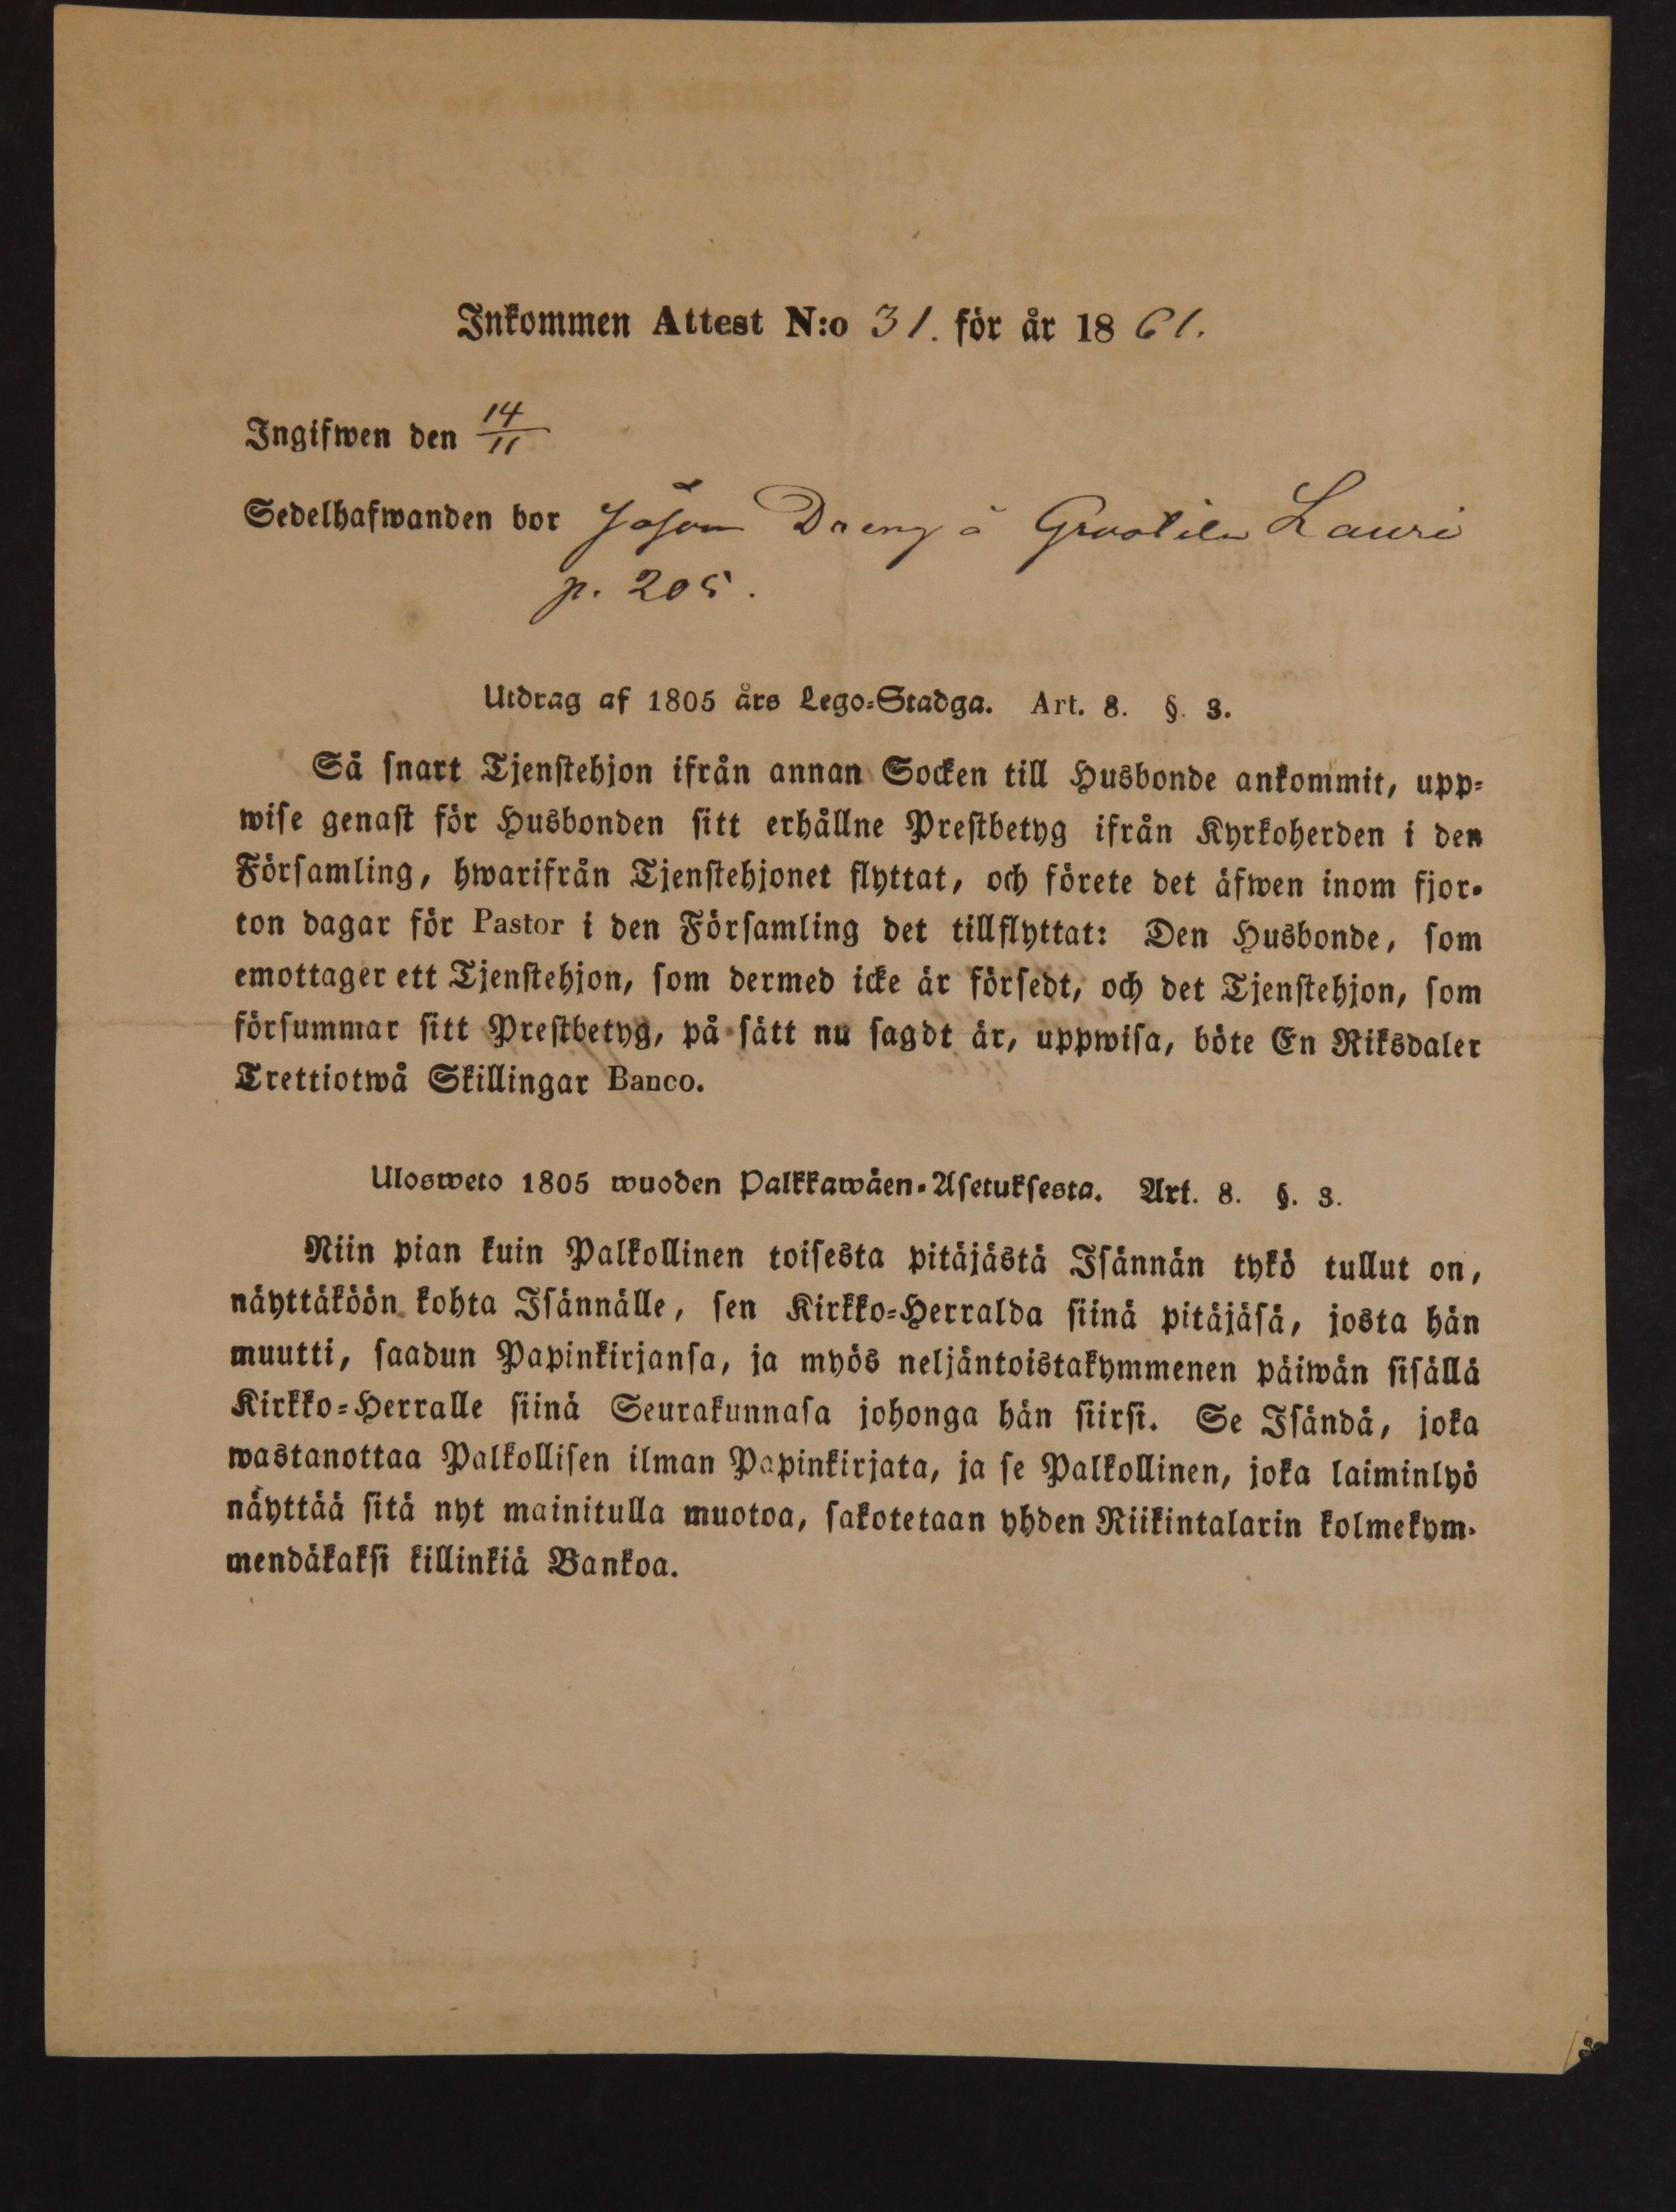 Inkommen Attest N:o 31. för år 1861.
Ingifwen den 14/11
Sedelhafwanden bor såsom Dreng å Lauri
p. 205.
Utdrag af 1805 års Lego-Stadga. Art. 8. §. 3.
Så snart Tjenstehjon ifrån annan Socken till Husbonde ankommit, upp-
wise genast för Husbonden sitt erhållne Prestbetyg ifrån Kyrkoherden i den
Församling, hwarifrån Tjenstehjonet flyttat, och förete det äfwen inom fjor-
ton dagar för Pastor i den Församling det tillflyttat: Den Husbonde, som
emottager ett Tjenstehjon, som dermed icke är försedt, och det Tjenstehjon, som
försummar sitt Prestbetyg, på sätt nu sagdt är, uppwisa, böte En Riksdaler
Trettiotwå Skillingar Banco.
Ulosweto 1805 wuoden Palkkawäen-Asetuksesta. Art. 8. §. 3.
Niin pian kuin Palkollinen toisesta pitäjästä Isännän tykö tullut on,
näyttäköön kohta Isännälle, sen Kirkko-Herralda siinä pitäjäsä, josta hän
muutti, saadun Papinkirjansa, ja myös neljäntoistakymmenen päiwän sisällä
Kirkko-Herralle siinä Seurakunnasa johonga hän siirsi. Se Isändä, joka
wastanottaa Palkollisen ilman Papinkirjata, ja se Palkollinen, joka laiminlyö
näyttää sitä nyt mainitulla muotoa, sakotetaan yhden Riikintalarin kolmekym-
mendäkaksi killinkiä Bankoa.